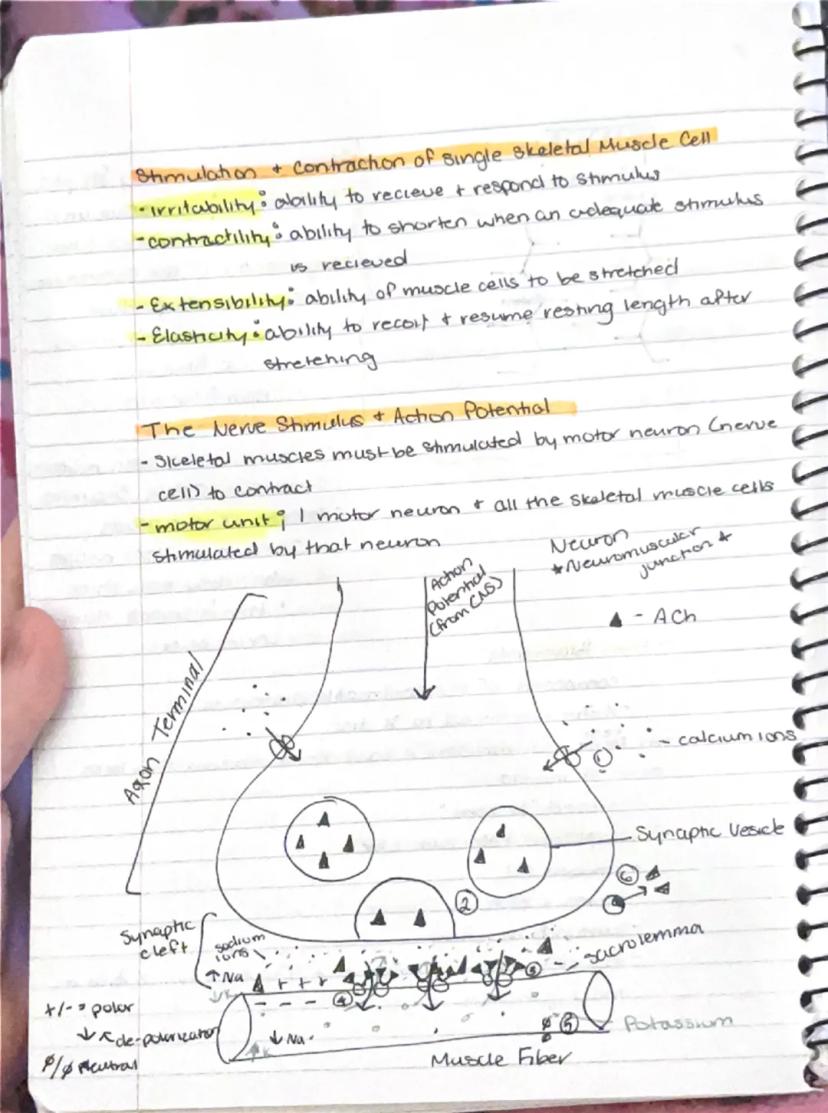 Stimulation + Contraction of Single Skeletal Muscle Cell
- irritability: ability to recieve + respond to stimulus
- contractility: ability to shorten when an adequate stimulus
is recieved
- Extensibility: ability of muscle cells to be stretched
- Elasticity: ability to recoil + resume resting length after
stretching
The Nerve Stimulus + Action Potential
- Skeletal muscles must be stimulated by motor neuron (nerve
cell) to contract
- motor unit; 1 motor neuron + all the skeletal muscle cells
stimulated by that neuron
Neuron
*Neuromuscular
junction*
Action
Potential
(from CNS)
▲ - ACh
Axon Terminal
- calcium ions
①
Synaptic Vesicle
②
⑥
Synaptic
cleft
sodium
ions
↑ Na
+ + +
- - -
④
③
- Sacrolemma
+/- = polar
↓ K
de-polarization
ø/ø neutral
↑K
↓ Na
ø ⑤
Potassium
Muscle Fiber